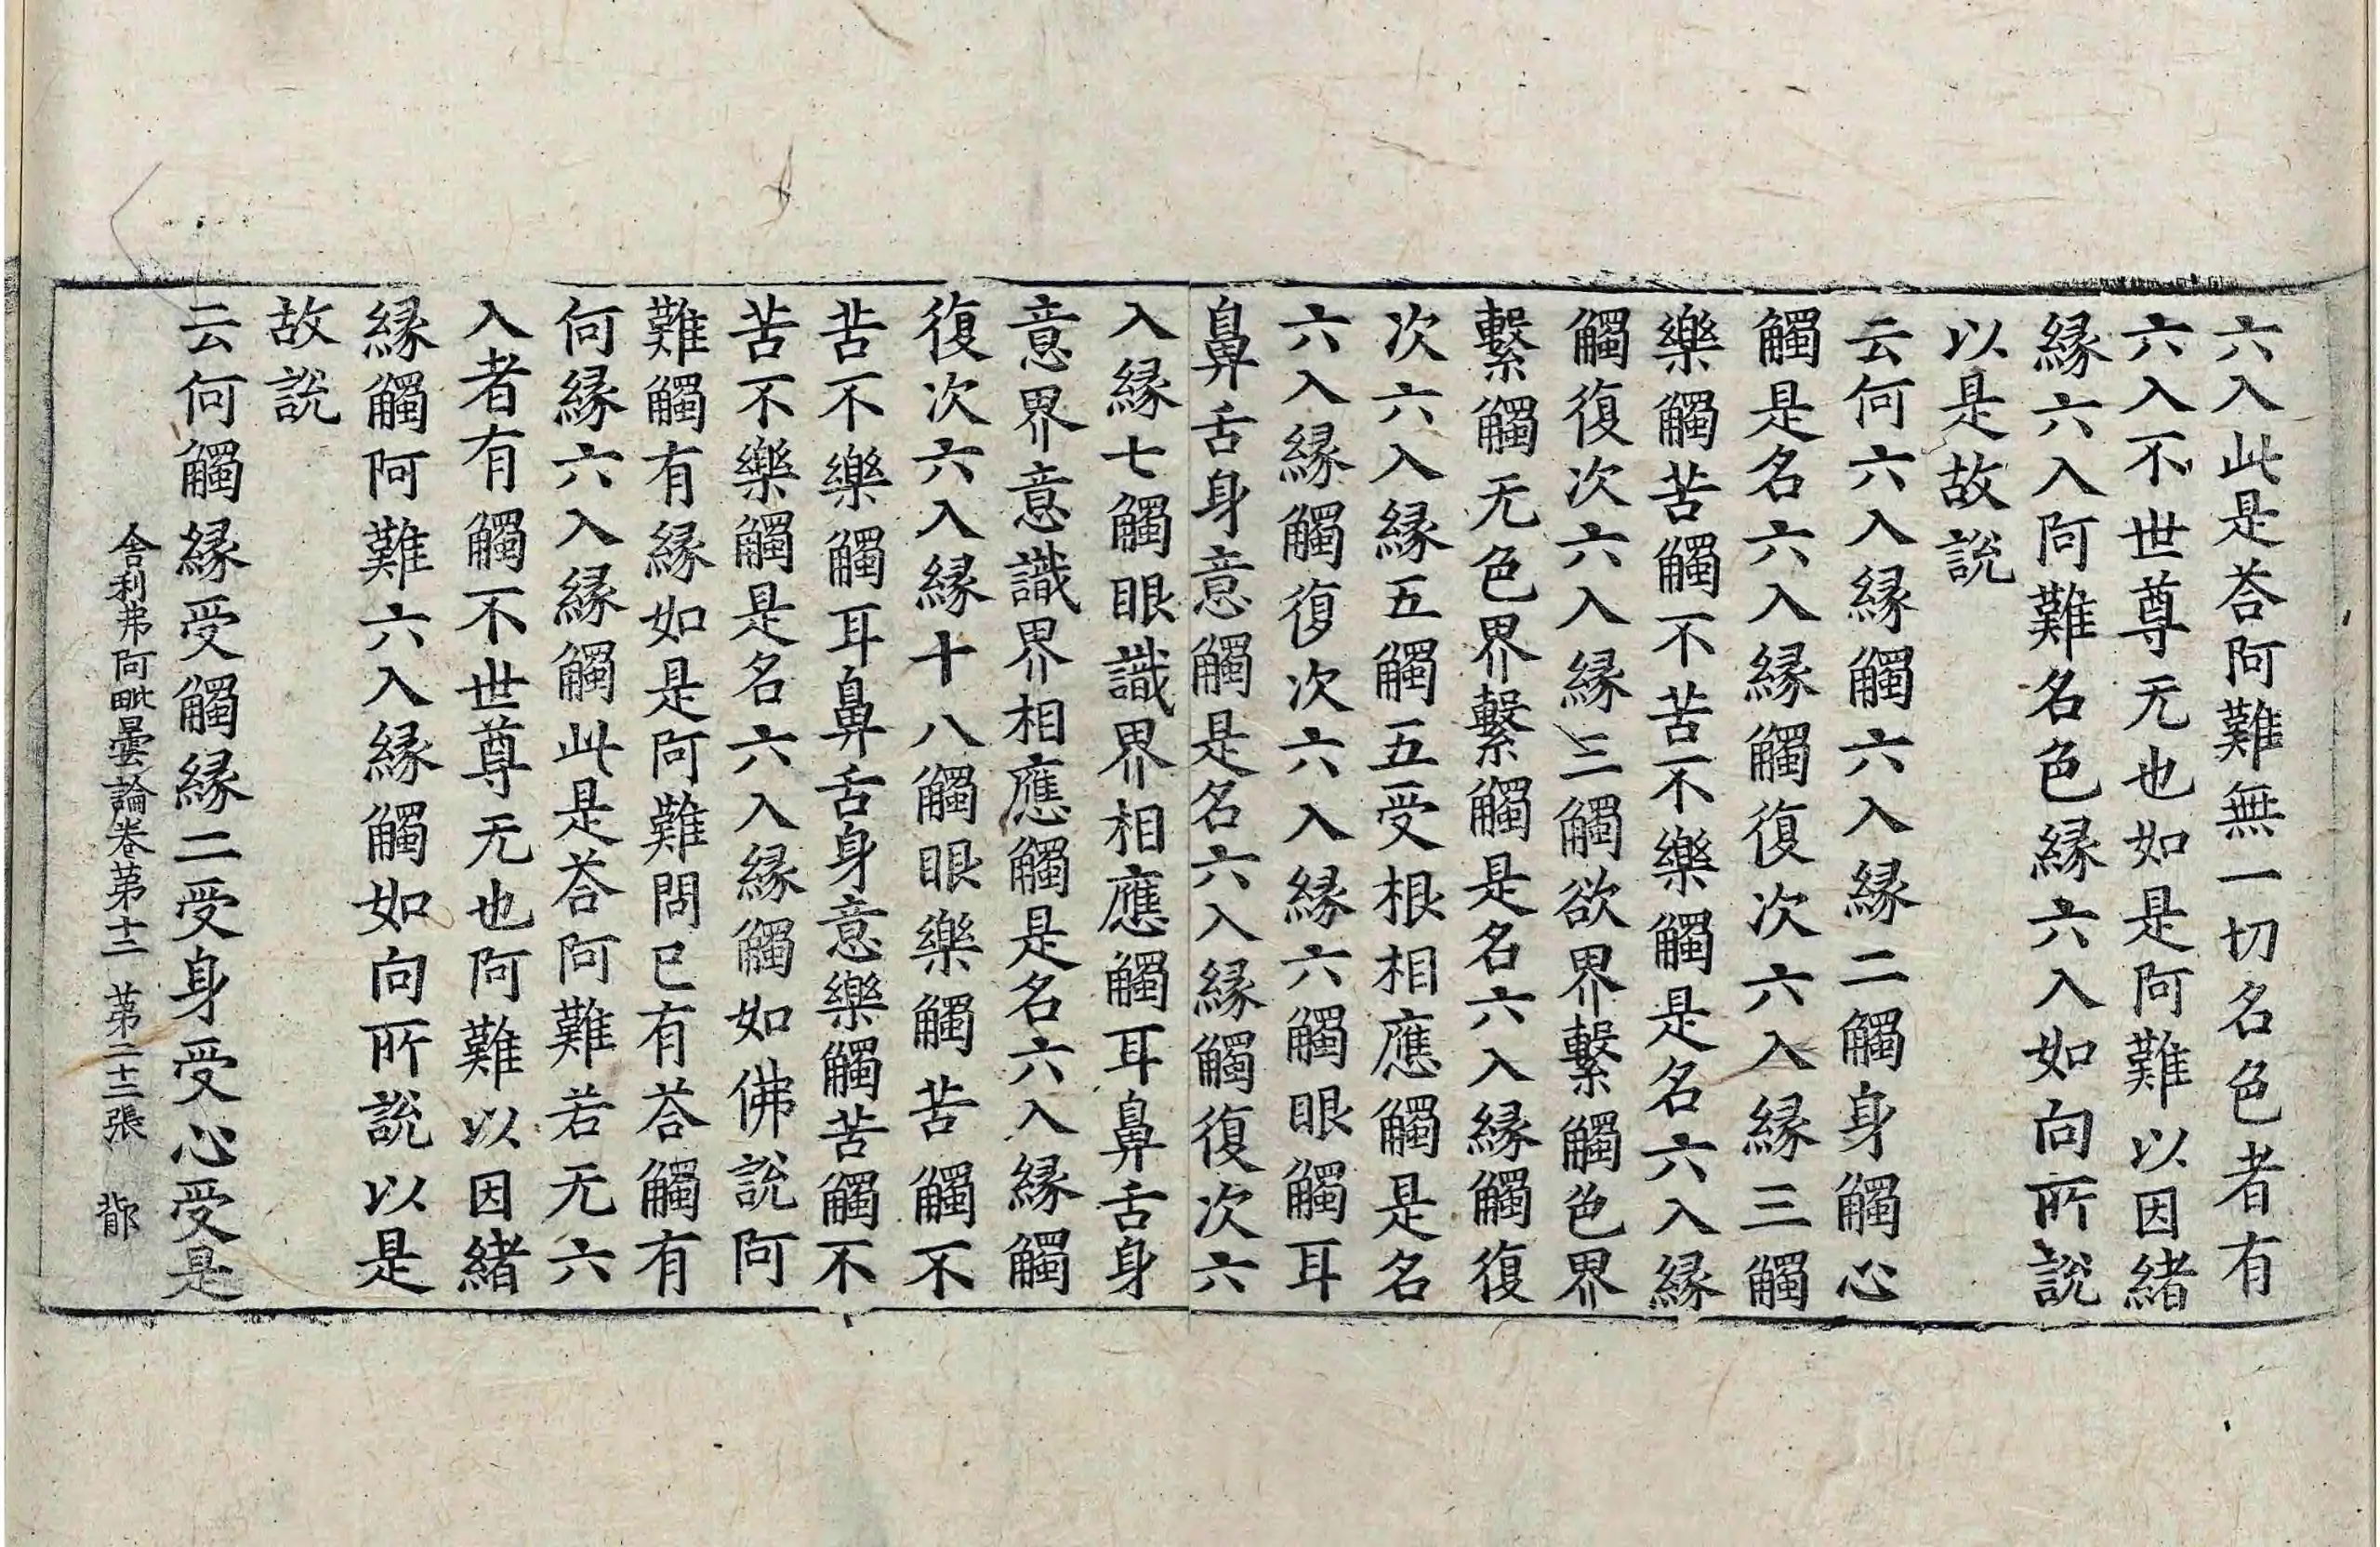 六入此是荅阿難無一切名色者有
六入不世尊无也如是阿難以因緒
縁六入阿難名色縁六入如向所説
以是故説
云何六入縁觸六入縁二觸身觸心
觸是名六入縁觸復次六入縁三觸
樂觸苦觸不苦不樂觸是名六入縁
觸復次六入縁三觸欲界繫觸色界
繫觸无色界繫觸是名六入縁觸復
次六入縁五觸五受根相應觸是名
六入縁觸復次六入縁六觸眼觸耳
鼻舌身意觸是名六入縁觸復次六
入縁七觸眼識界相應觸耳鼻舌身
意界意識界相應觸是名六入縁觸
復次六入縁十八觸眼樂觸苦觸不
苦不樂觸耳鼻舌身意樂觸苦觸不
苦不樂觸是名六入縁觸如佛説阿
難觸有縁如是阿難問已有荅觸有
何縁六入縁觸此是荅阿難若无六
入者有觸不世尊无也阿難以因緒
縁觸阿難六入縁觸如向所説以是
故説
云何觸縁受觸縁二受身受心受是
舎利弗阿毗曇論卷第十二 第二十三張